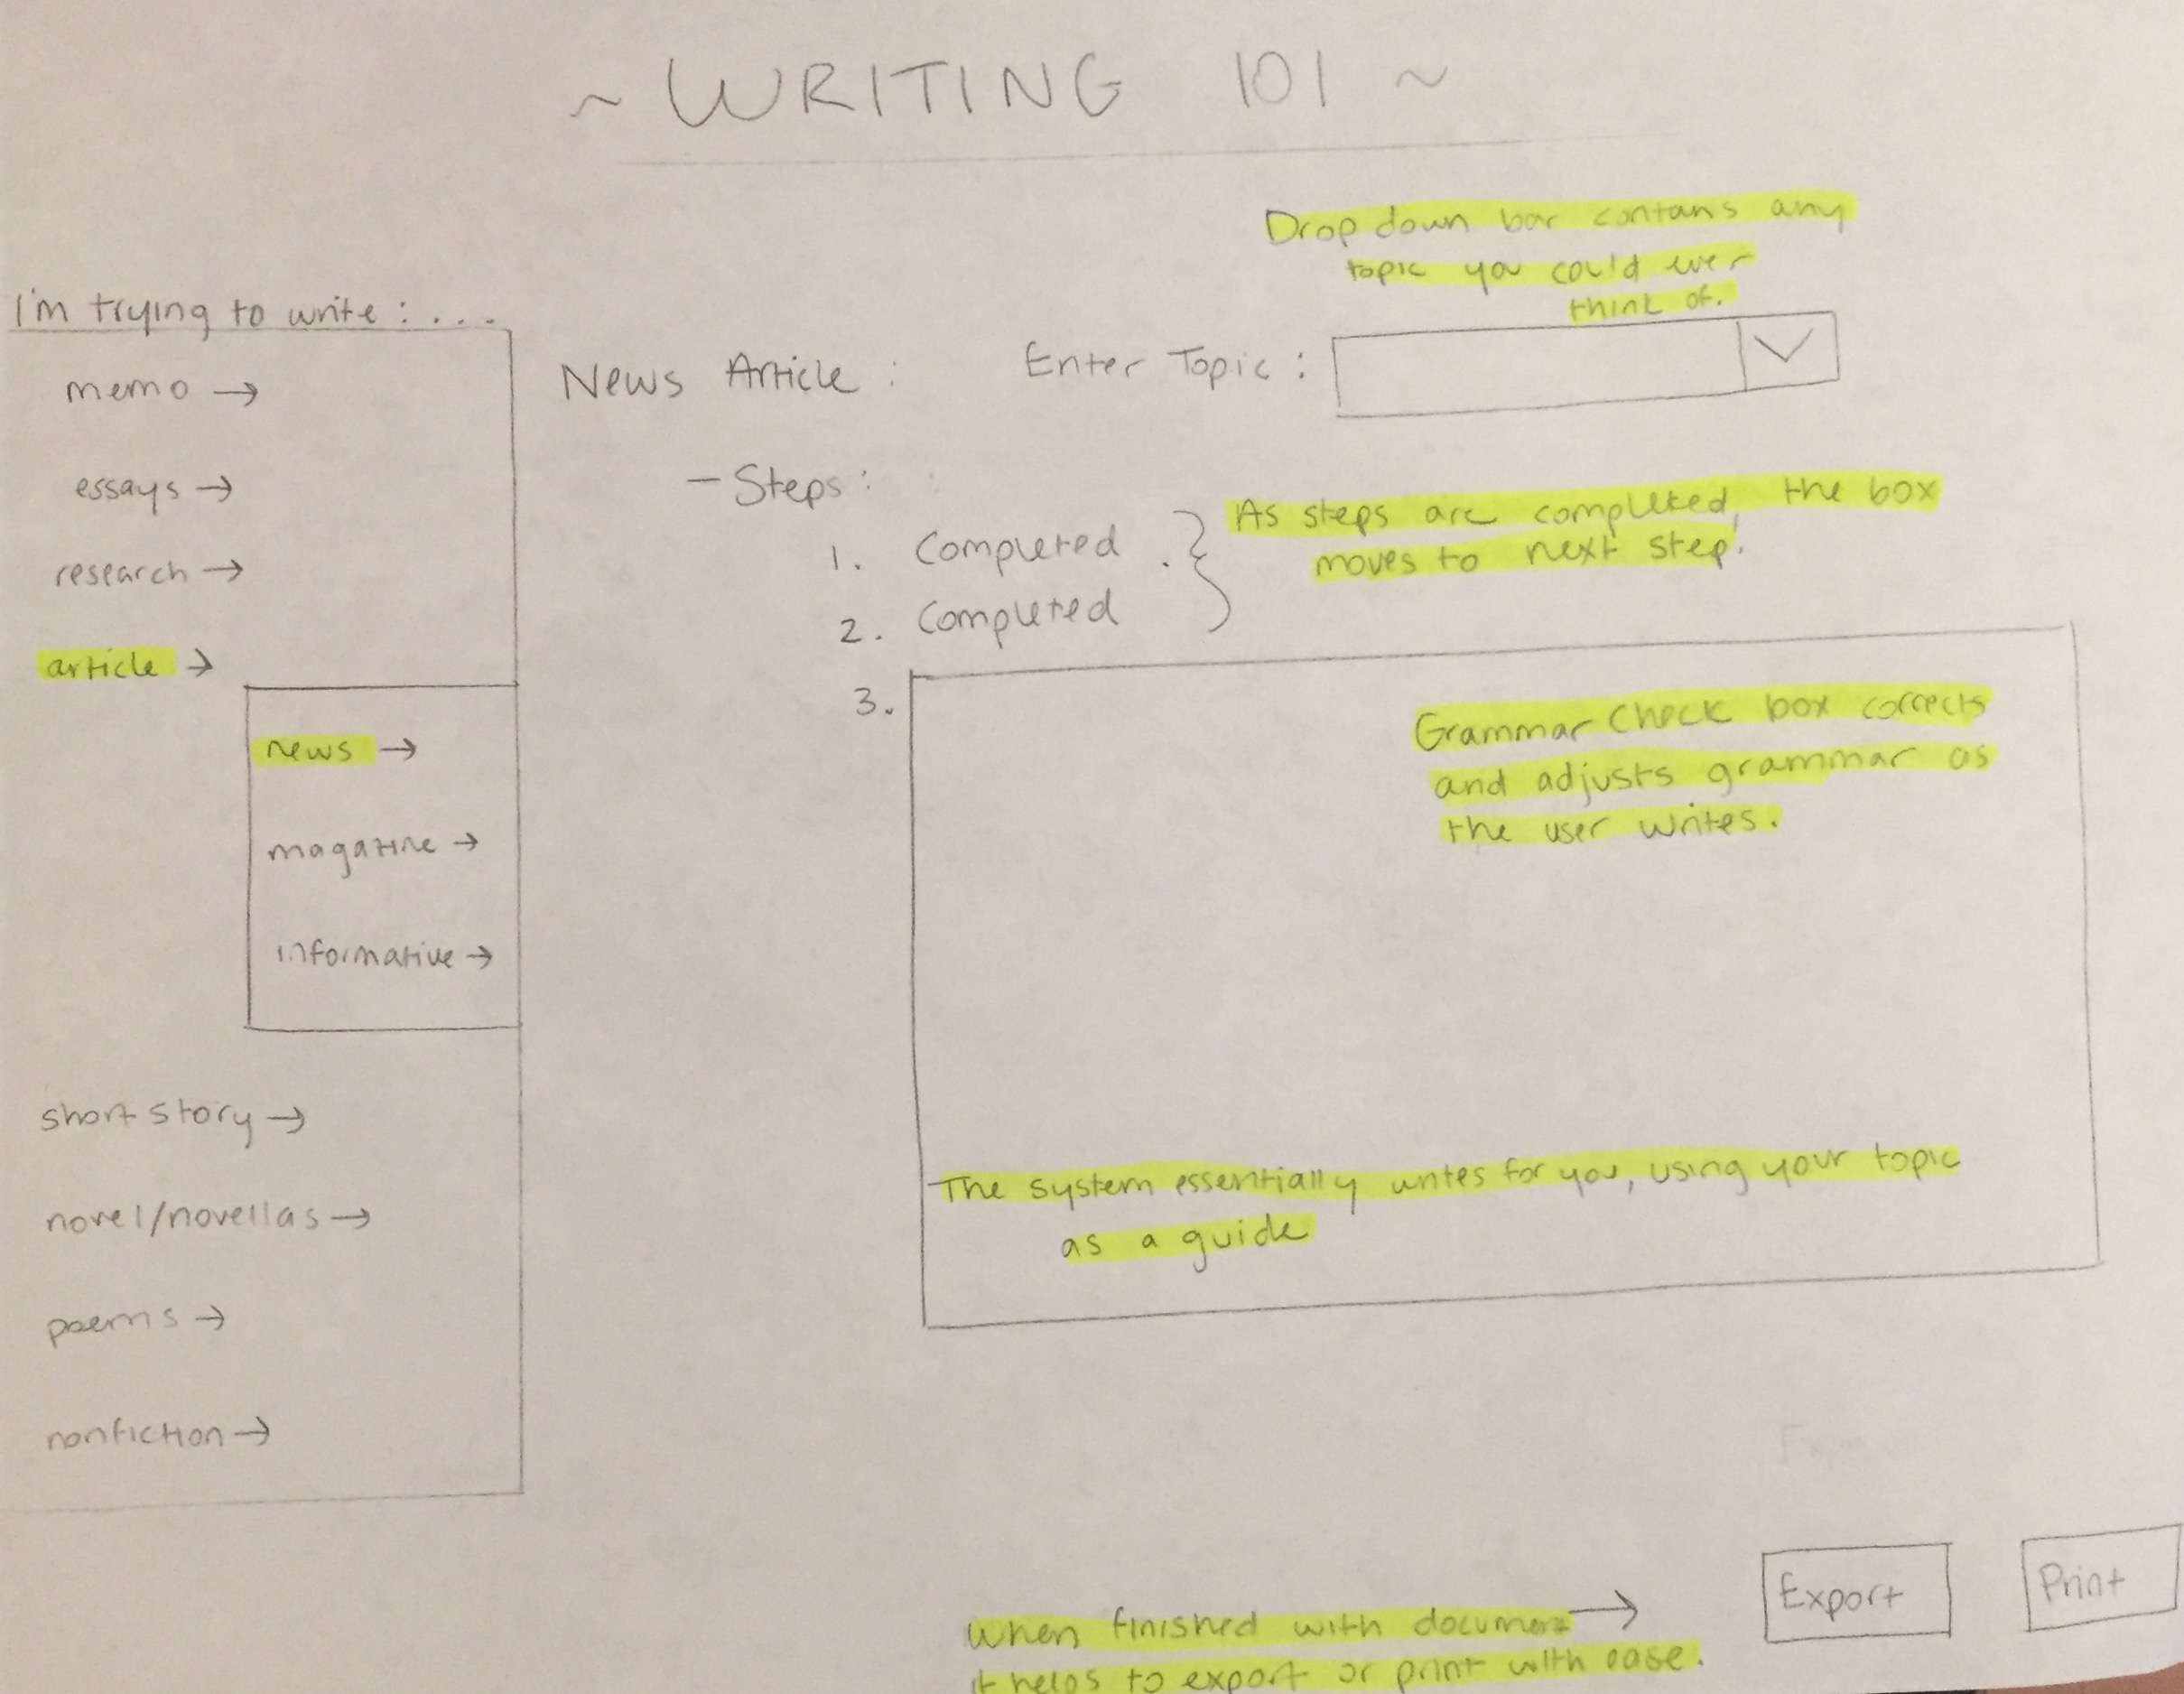 ~ WRITING 101 ~
I'm trying to write: ...
memo →
essays →
research →
article →
news →
magazine →
informative →
short story →
novel/novellas →
poems →
nonfiction →
Drop down bar contans any
topic you could ever
think of.
News Article : Enter Topic :
- Steps :
1. Completed
2. Completed
As steps are completed, the box
moves to next step.
3.
Grammar Check box corrects
and adjusts grammar as
the user writes.
The system essentially writes for you, using your topic
as a guide
when finished with document →
it helps to export or print with ease.
Export
Print